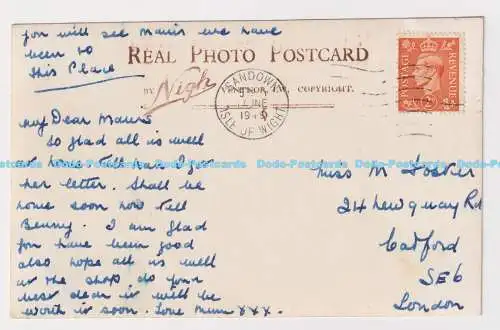 you will see Mavis we have
been to
this Place
REAL PHOTO POSTCARD
BY Nigh
VENTNOR, I.W. COPYRIGHT.
SANDOWN
ISLE OF WIGHT
JNE
19
POSTAGE
REVENUE
My Dear Mavis
So glad all is well
at home tell nan I got
her letter. Shall be
home soon now tell
Benny. I am glad
you have been good
also hope all is well
at the shop. do your
best dear it will be
worth it soon. Love Mum xxx.
Miss M Foster
24 Newquay Rd
Catford
SE6
London
Dodo-Postcards Dodo-Postcards Dodo-Postcards Dodo-Postcards Dodo-Postcards